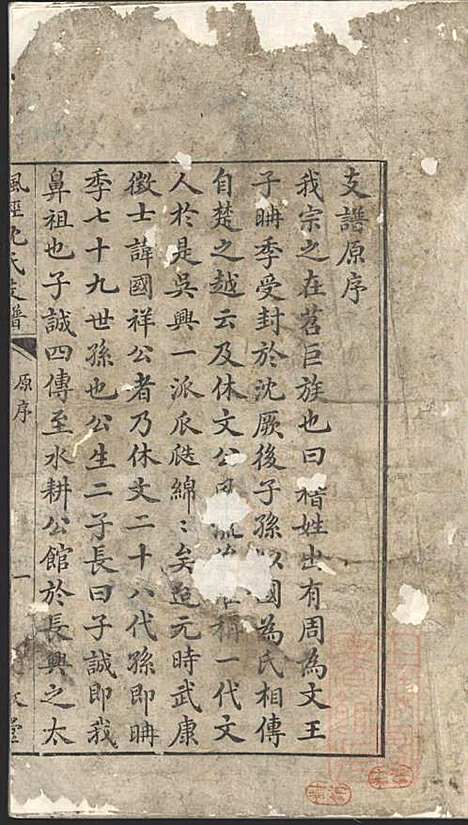 支譜原序
我宗之在苕巨族也曰稽姓出有周為文王
子聃季受封於沈厥後子孫以國為氏相傳
自楚之越云及休文公風流稱一代文
人於是吳興一派爪瓞綿〻矣迨元時武康
徵士諱國祥公者乃休文二十八代孫即聃
季七十九世孫也公生二子長曰子誠即我
鼻祖也子誠四傳至水耕公館於長興之太
風涇沈氏支譜
原序
一
堂